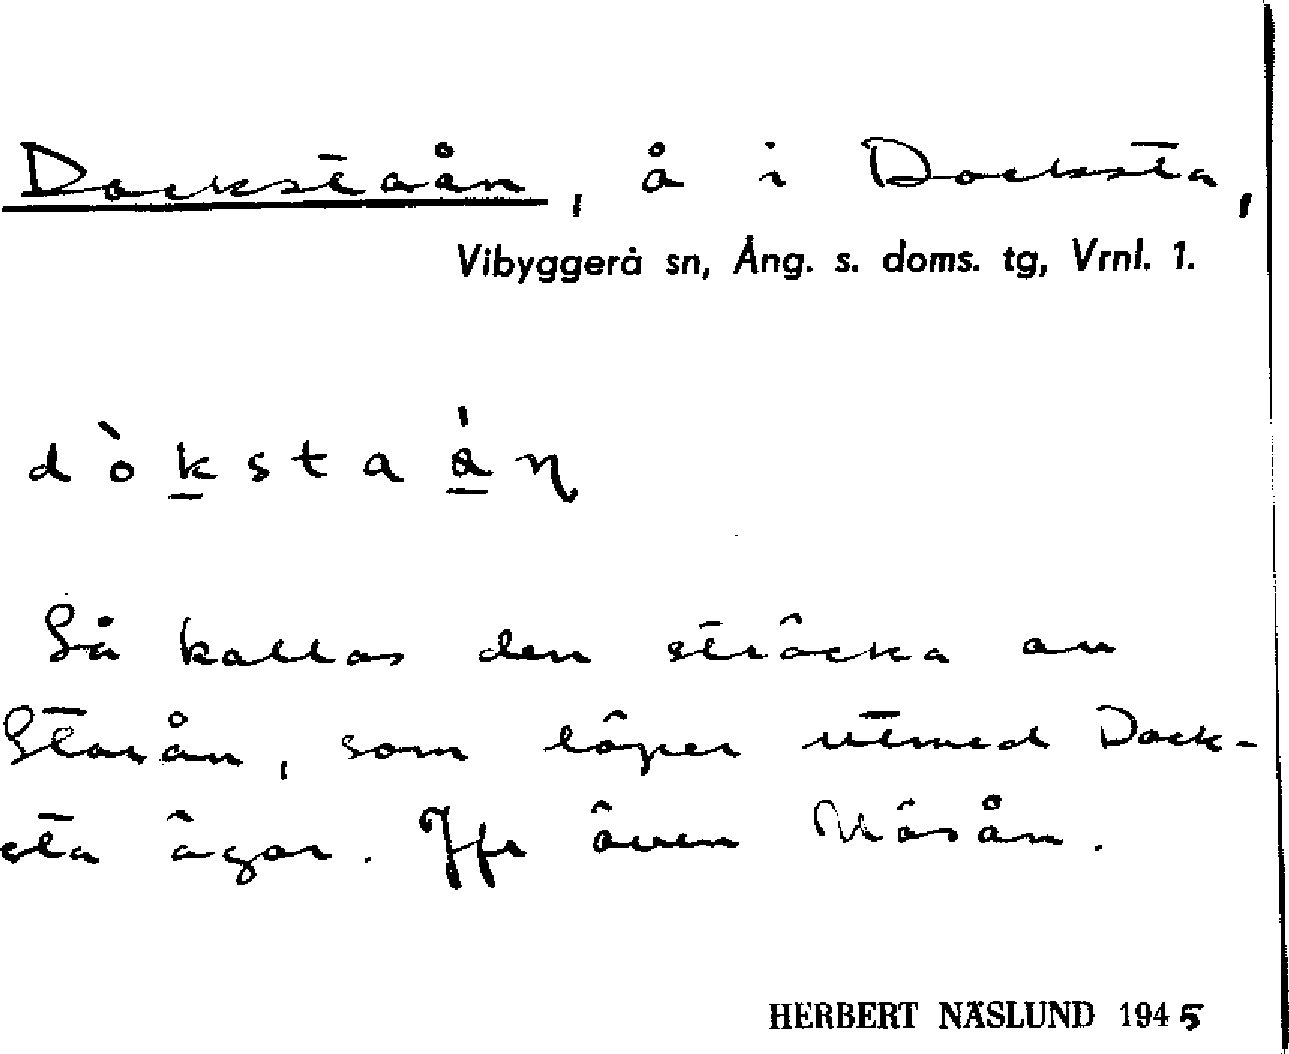 Dockstaån, å i Docksta,
Vibyggerå sn, Ång. s. doms. tg, Vrnl. 1.
dòkstaån
Så kallas den sträcka av
Storån, som löper utmed Dock-
sta ägor. Jfr även Näsån.
HERBERT NÄSLUND 1945